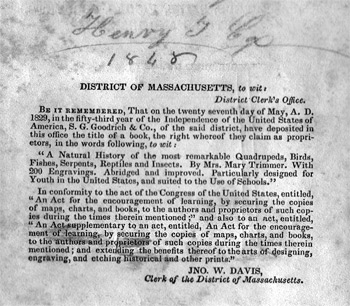 Henry
18
DISTRICT OF MASSACHUSETTS, to wit:
District Clerk's Office.
BE IT REMEMBERED, That on the twenty seventh day of May, A. D.
1829, in the fifty-third year of the Independence of the United States of
America, S. G. Goodrich & Co., of the said district, have deposited in
this office the title of a book, the right whereof they claim as propri-
etors, in the words following, to wit:
"A Natural History of the most remarkable Quadrupeds, Birds,
Fishes, Serpents, Reptiles and Insects. By Mrs. Mary Trimmer. With
200 Engravings. Abridged and improved. Particularly designed for
Youth in the United States, and suited to the Use of Schools."
In conformity to the act of the Congress of the United States, entitled,
"An Act for the encouragement of learning, by securing the copies
of maps, charts, and books, to the authors and proprietors of such copies
during the times therein mentioned;" and also to an act, entitled,
"An Act supplementary to an act, entitled, An Act for the encourage-
ment of learning, by securing the copies of maps, charts, and books,
to the authors and proprietors of such copies during the times therein
mentioned; and extending the benefits thereof to the arts of designing,
engraving, and etching historical and other prints."
JNO. W. DAVIS,
Clerk of the District of Massachusetts.